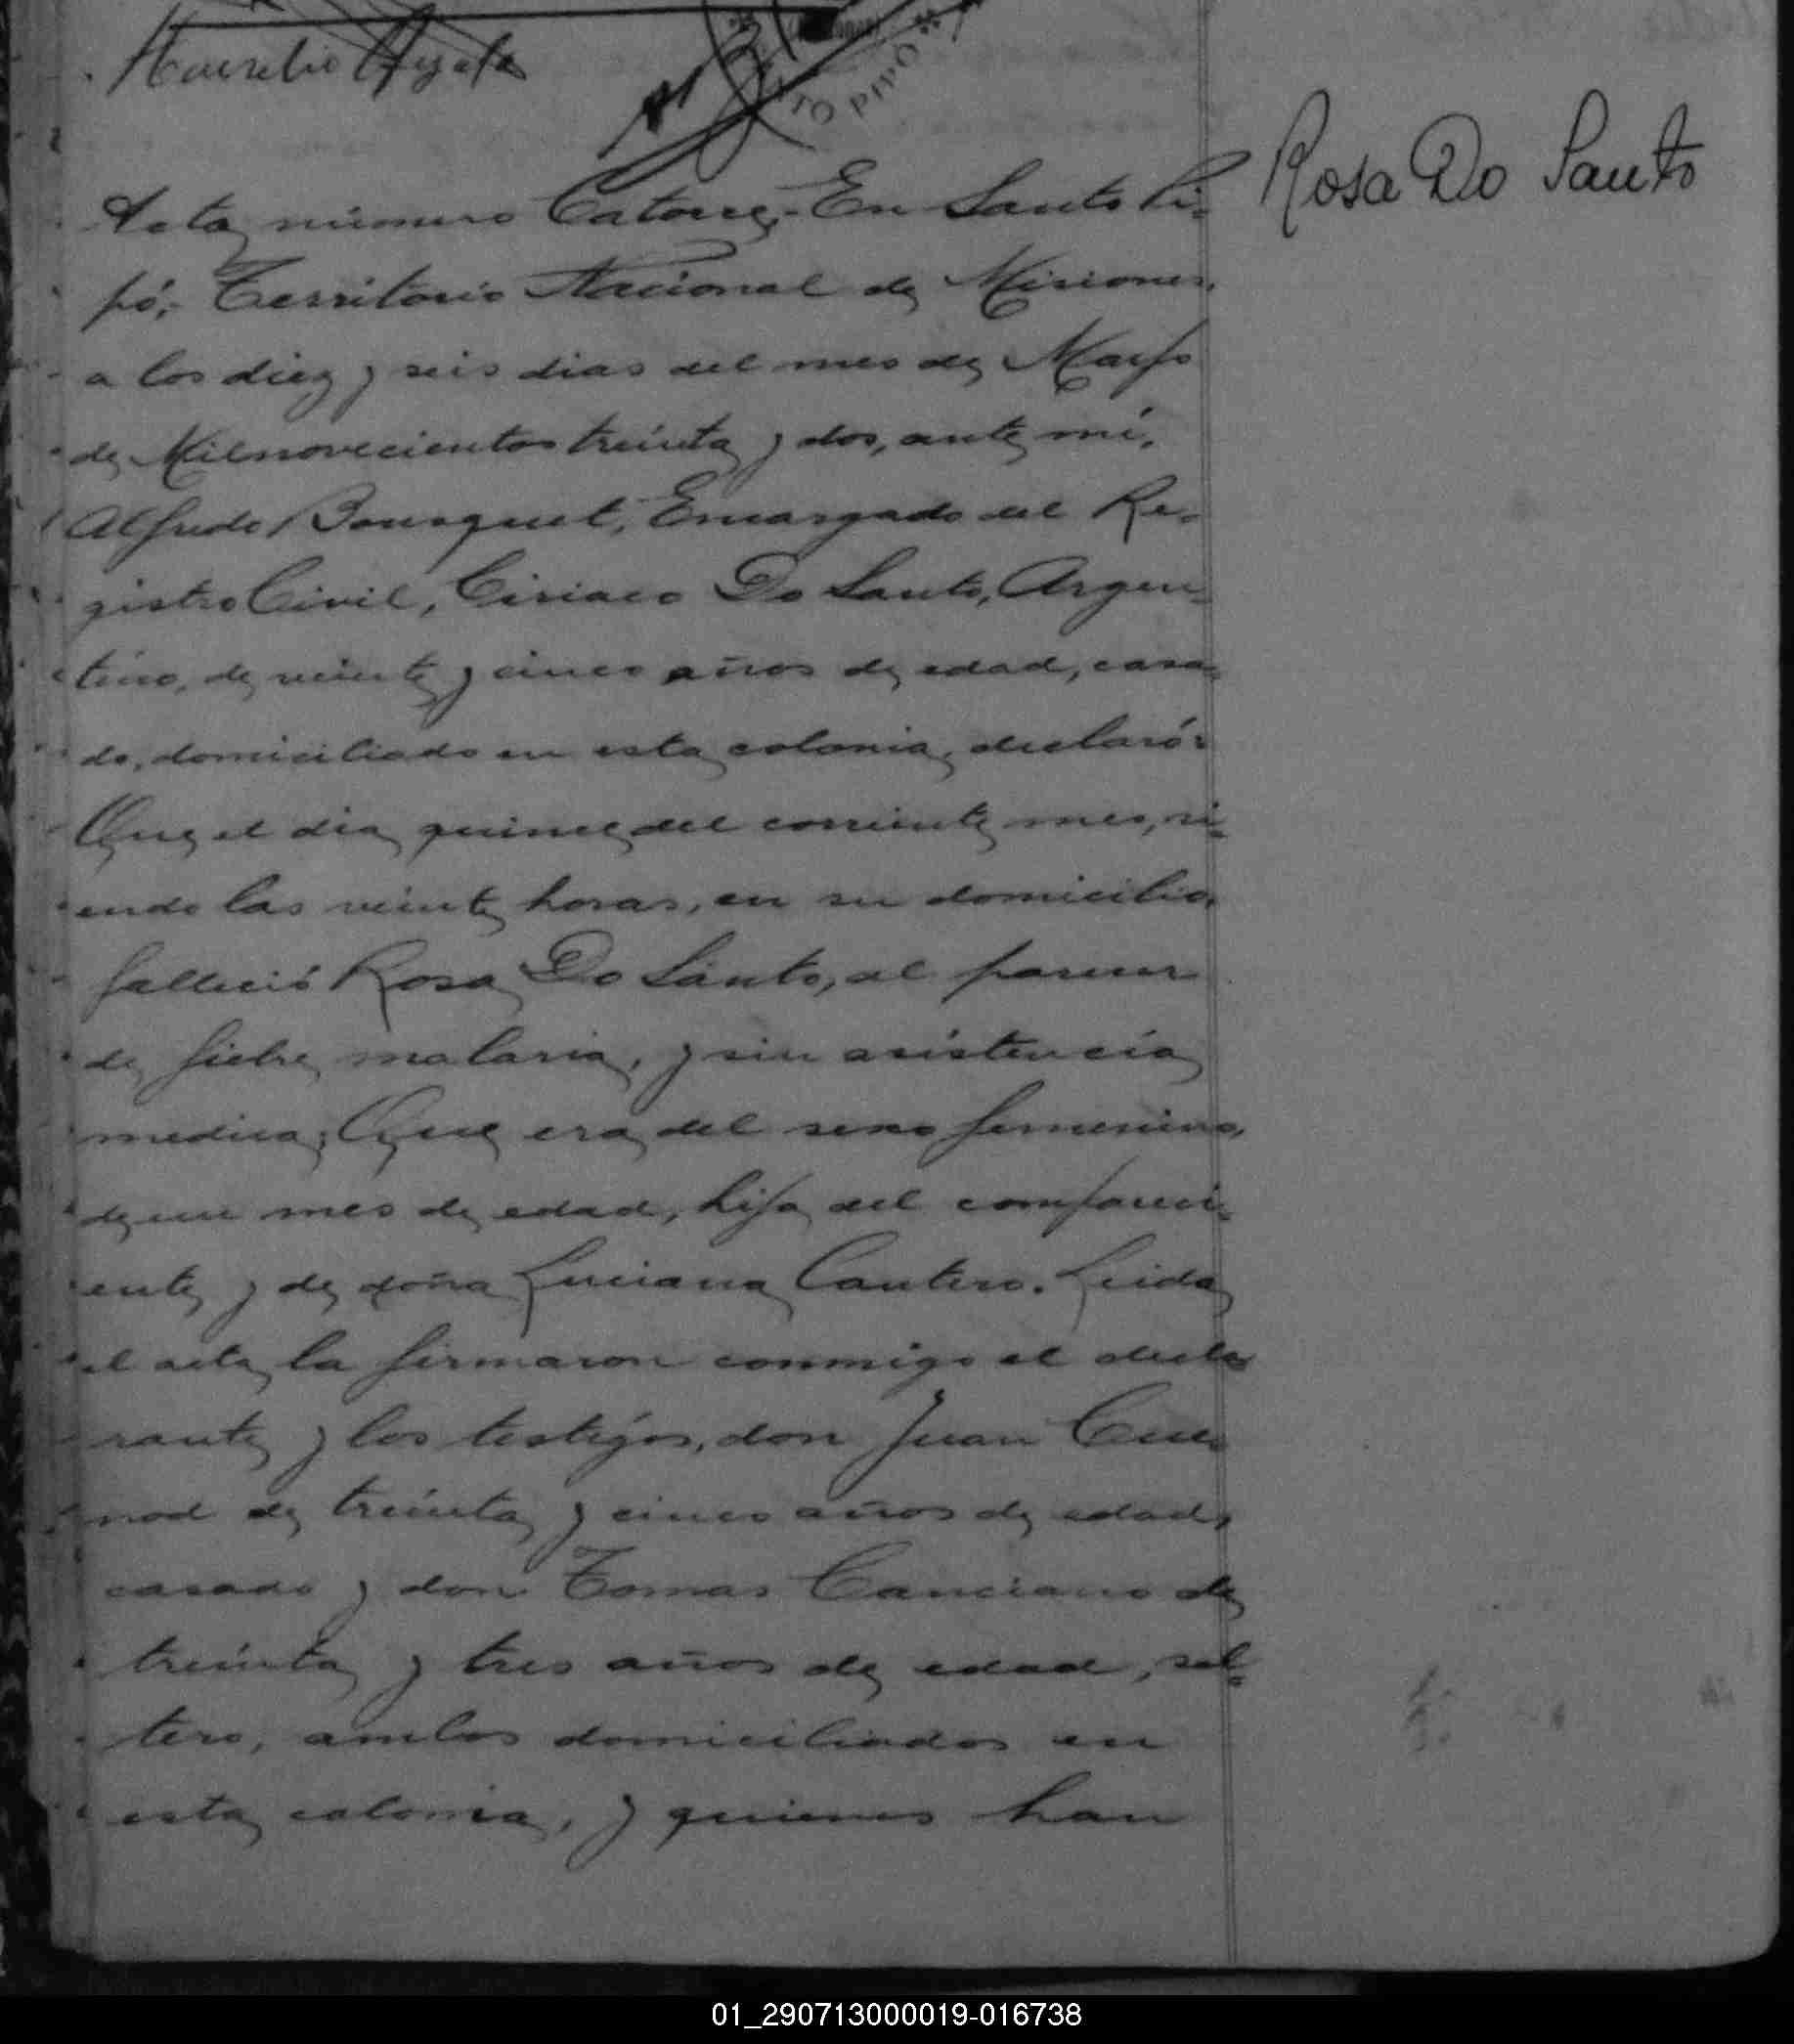 Aurelio Ayala
PIPO
Rosa Do Santo
Acta número Catorce.- En Santo Pi-
pó,- Territorio Nacional de Misiones,
a los diez y seis dias del mes de Marzo
de Milnovecientos treinta y dos, ante mí,
Alfredo Bousquet, Encargado del Re-
gistro Civil, Ciriaco Do Santo, Argen-
tino, de veinte y cinco años de edad, casa-
do, domiciliado en esta colonia, declaró:
Que el dia quince del corriente mes, si-
endo las veinte horas, en su domicilio,
falleció Rosa Do Santo, al parecer
de fiebre malaria, y sin asistencia
medica; Que era del sexo femenino,
de un mes de edad, hija del compareci-
ente y de doña Luciana Cantero. Leida
el acta, la firmaron conmigo el decla-
rante y los testigos, don Juan Cue-
nod de treinta y cinco años de edad,
casado y don Tomas Canciano de
treinta y tres años de edad, sol-
tero, ambos domiciliados en
esta colonia, y quienes han
01_290713000019-016738